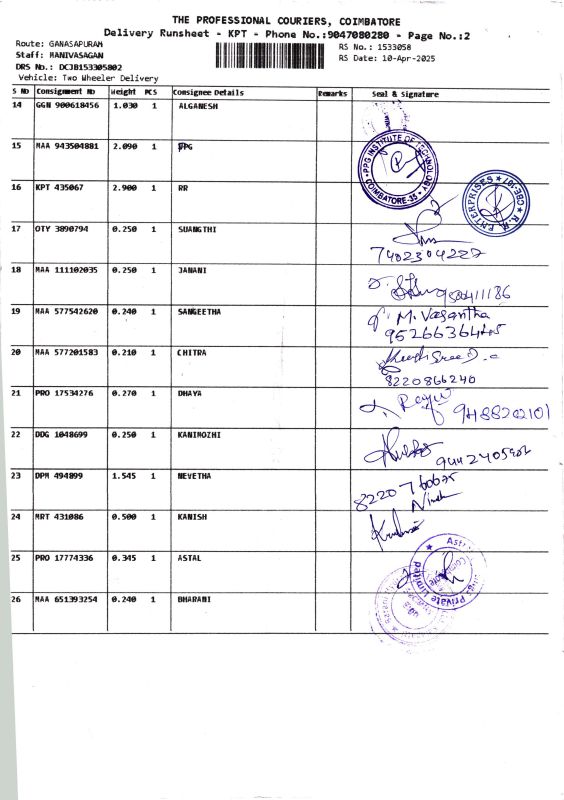 THE PROFESSIONAL COURIERS, COIMBATORE
Delivery Runsheet - KPT - Phone No.:9047080280 - Page No.:2
Route: GANASAPURAM
RS No.: 1533058
Staff: MANIVASAGAN
RS Date: 10-Apr-2025
DRS No.: DCJB153305802
Vehicle: Two Wheeler Delivery
S No Consignment No Weight PCS Consignee Details Remarks Seal & Signature
14 GGN 900618456 1.030 1 ALGANESH
15 MAA 943504881 2.090 1 PPG
PPG INSTITUTE OF TECHNOLOGY COIMBATORE-35
16 KPT 435067 2.900 1 RR
R.R. ENTERPRISES CBE-107
17 OTY 3890794 0.250 1 SUANGTHI
7402304227
18 MAA 111102035 0.250 1 JANANI
19 MAA 577542620 0.240 1 SANGEETHA
M. Vasantha
20 MAA 577201583 0.210 1 CHITRA
8220866240
21 PRO 17534276 0.270 1 DHAYA
9488202101
22 DDG 1048699 0.250 1 KANIMOZHI
23 DPM 494899 1.545 1 NEVETHA
24 MRT 431086 0.500 1 KANISH
25 PRO 17774336 0.345 1 ASTAL
Private Limited
26 MAA 651393254 0.240 1 BHARANI